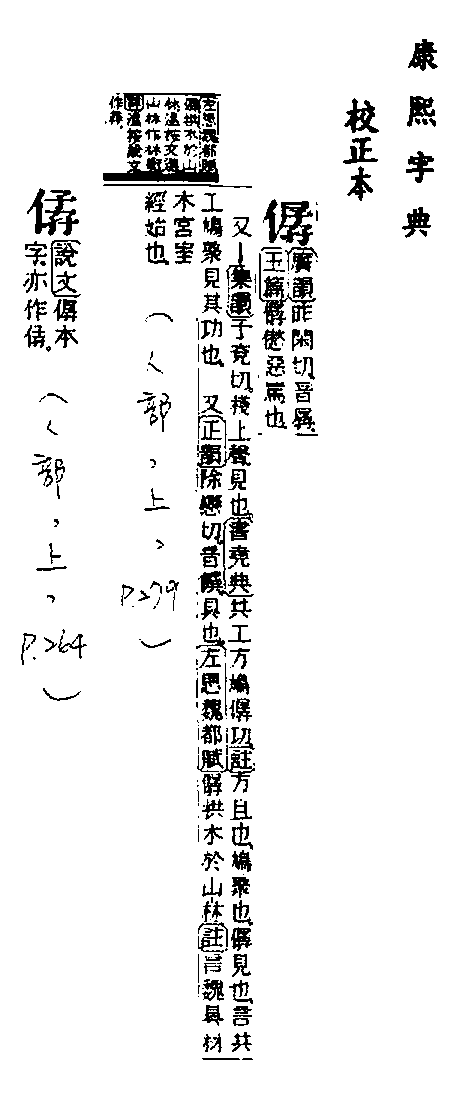 康熙字典
校正本
僝
廣韻昨閑切音孱
玉篇僝僽惡罵也
又集韻子兗切棧上聲見也書堯典共工方鳩僝功註方且也鳩聚也僝見也言共
工鳩聚見其功也 又正韻除戀切音饌具也左思魏都賦僝拱木於山林註言魏具材
木宮室
經始也
(人部,上,P.279)
左思魏都賦
僝拱木於山
林謹按文選
山林作林衡
說文僝本
字亦作
(人部,上,P.264)